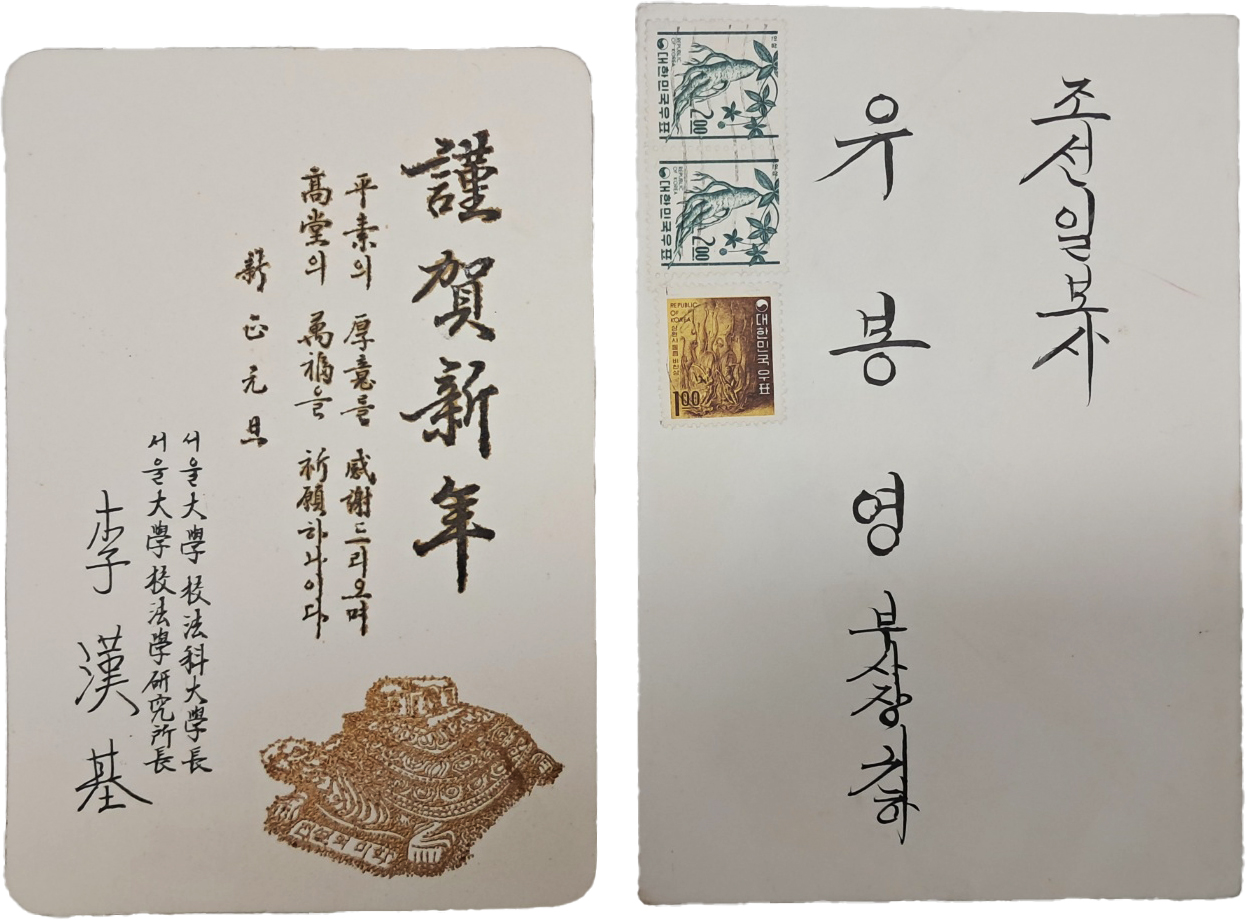 謹賀新年
平素의 厚意를 感謝드리오며
高堂의 萬福을 祈願하나이다
新正元旦
서울大學校法科大學長
서울大學校法學硏究所長
李漢基
조선일보사
유봉영 부사장 귀하
대한민국우표
REPUBLIC OF KOREA
인삼
2.00
대한민국우표
REPUBLIC OF KOREA
인삼
2.00
대한민국 우표
REPUBLIC OF KOREA
1.00